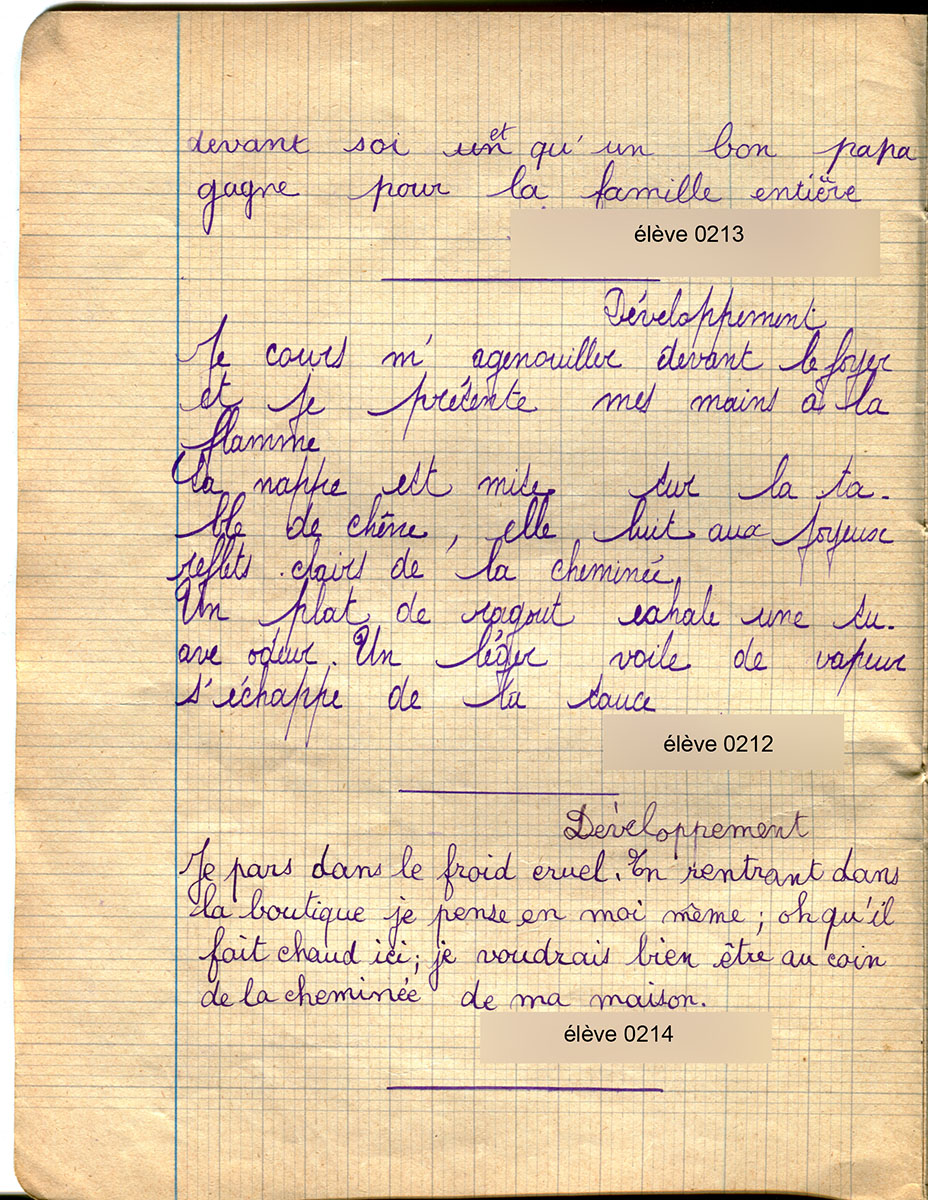 devant soi et qu'un bon papa
gagne pour la famille entière
élève 0213
Développement
Je cours m'agenouiller devant le foyer
et je présente mes mains à la
flamme
La nappe est mise sur la ta-
ble de chêne, elle luit aux joyeux
reflets clairs de la cheminée,
Un plat de ragout exhale une su-
ave odeur. Un léger voile de vapeur
s'échappe de la sauce
élève 0212
Développement
Je pars dans le froid cruel. En rentrant dans
la boutique je pense en moi même ; oh qu'il
fait chaud ici ; je voudrais bien être au coin
de la cheminée de ma maison.
élève 0214